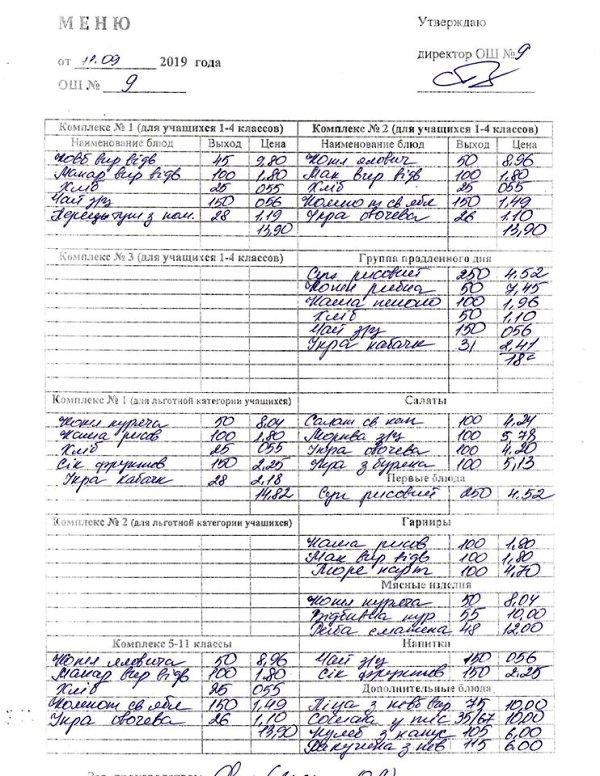 МЕНЮ
Утверждаю
от 11.09 2019 года
директор ОШ № 9
ОШ № 9
Комплекс № 1 (для учащихся 1-4 классов)
Наименование блюд Выход Цена
Ковб вир відв 45 9,80
Макар вир відв 100 1,80
Хліб 25 055
Чай з/ц 150 056
28 1,19
13,90
Комплекс № 2 (для учащихся 1-4 классов)
Наименование блюд Выход Цена
Котл ялович 50 8,96
Мак вир відв 100 1,80
Хліб 25 055
Компот св ябл 150 1,49
Ікра овочева 26 1.10
13,90
Комплекс № 3 (для учащихся 1-4 классов)
Группа продленного дня
Суп рисовий 250 4.52
Котл рибна 50 7,45
Каша 100 1,96
Хліб 50 1,10
Чай з/ц 150 056
Ікра кабачк 31 2,41
18
Комплекс № 1 (для льготной категории учащихся)
Котл куряча 50 8,04
Каша рисов 100 1,80
Хліб 25 055
Сік фруктов 150 2.25
Ікра кабачк 28 2,18
14,82
Салаты
Салат св кап 100 4,24
Морква з/ц 100 5,78
Ікра овочева 100 4,20
Ікра з буряка 100 5,13
Первые блюда
Суп рисовий 250 4,52
Комплекс № 2 (для льготной категории учащихся)
Гарниры
Каша рисов 100 1,80
Мак вир відв 100 1,80
Пюре карт 100 4,70
Мясные изделия
Котл куряча 50 8,04
Відбивна кур 55 10,00
Риба смажена 48 12.00
Комплекс 5-11 классы
Котл яловича 50 8,96
Макар вир відв 100 1,80
Хліб 25 055
Компот св ябл 150 1,49
Ікра овочева 26 1,10
13,90
Напитки
Чай з/ц 150 056
Сік фруктов 150 2.25
Дополнительные блюда
Піца з ковб вир 75 10,00
Сосиска у тісті 35/67 10,00
Кулеб з капус 105 6,00
з ков 115 6,00